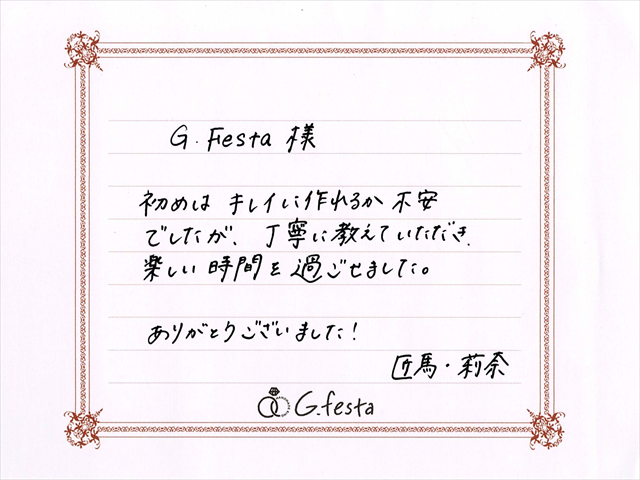 G.Festa 様
初めは キレイに作れるか 不安
でしたが、丁寧に教えていただき、
楽しい時間を過ごせました。
ありがとうございました!
匠馬・莉奈
G.festa